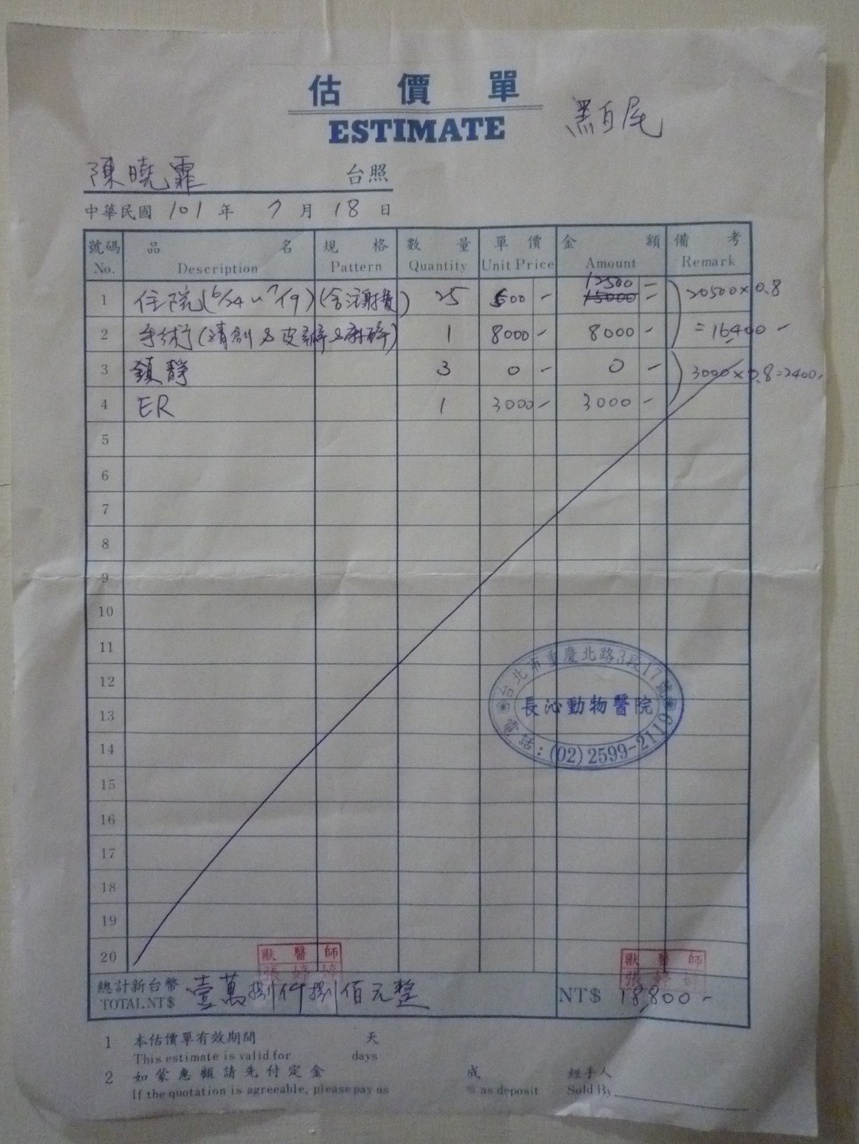 估價單
ESTIMATE
黑白尾
陳曉霏 台照
中華民國 101 年 7 月 18 日
號碼 品名 規格 數量 單價 金額 備考
No. Description Pattern Quantity Unit Price Amount Remark
12500-
1 住院(6/24~7/9)(含注射費) 25 500- 15000- 20500×0.8
2 手術(清創&皮瓣&麻醉) 1 8000- 8000- =16400-
3 鎮靜 3 0- 0- 3000×0.8=2400-
4 ER 1 3000- 3000-
5
6
7
8
9
10
11
12
13
14
15
16
17
18
19
20
台北市重慶北路3段17號
長沁動物醫院
電話:(02)2599-2119
獸醫師
獸醫師
總計新台幣 壹萬捌仟捌佰元整
TOTAL NT$ NT$ 18,800-
1 本估價單有效期間 天
This estimate is valid for days
2 如蒙惠顧請先付定金 成 經手人
If the quotation is agreeable, please pay us % as deposit Sold By